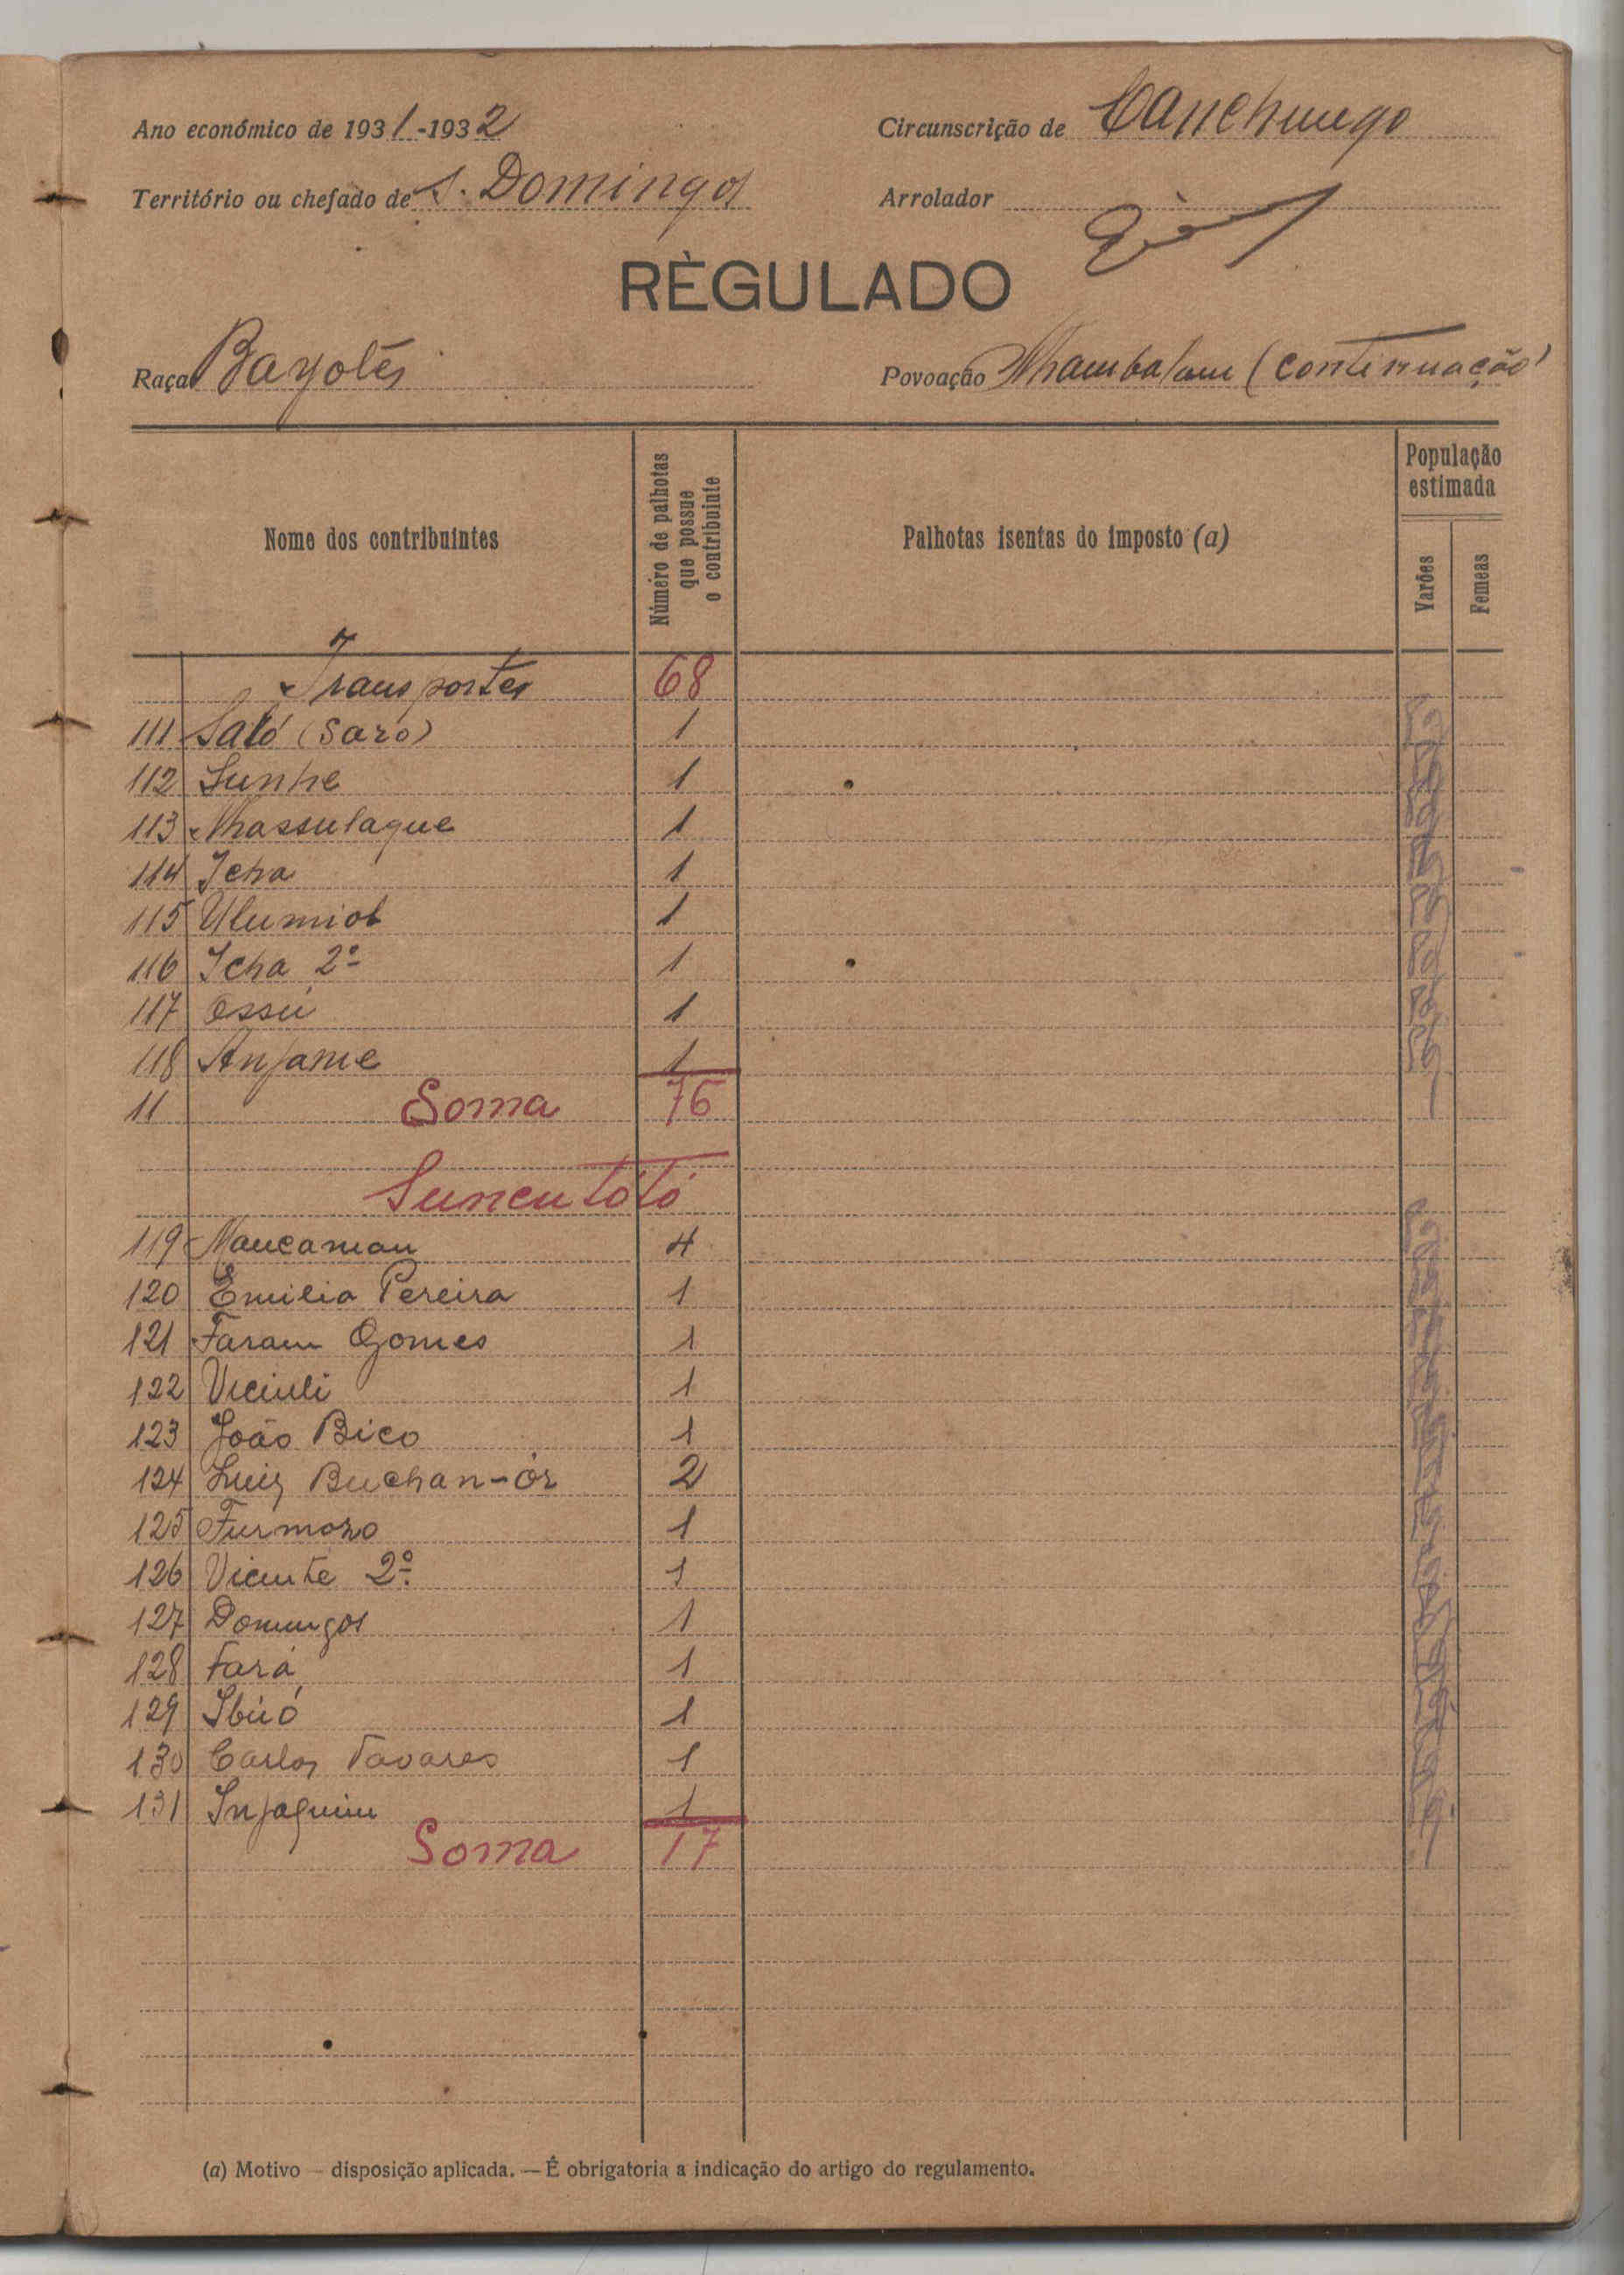 Ano económico de 1931-1932
Circunscrição de Canchungo
Território ou chefado de S. Domingos
Arrolador
RÈGULADO
Raça Bayotes
Povoação Nhambalam (continuação)
Nome dos contribuintes
Número de palhotas que possue o contribuinte
Palhotas isentas do imposto (a)
População estimada
Varões
Femeas
Transportes 68
111 Saló (Saro) 1
112 Sunhe 1
113 Nhassulaque 1
114 Icha 1
115 Ulumiol 1
116 Icha 2º 1
117 Ossu 1
118 Anjame 1
11 Soma 76
Suncutótó
119 Naucaman 4
120 Emilia Pereira 1
121 Faram Gomes 1
122 1
123 João Bico 1
124 Luiz Buchan-ór 2
125 Furmozo 1
126 Vicente 2º 1
127 Domingos 1
128 Fará 1
129 Ibúó 1
130 Carlos Tavares 1
131 Injaquim 1
Soma 17
(a) Motivo — disposição aplicada. — É obrigatoria a indicação do artigo do regulamento.